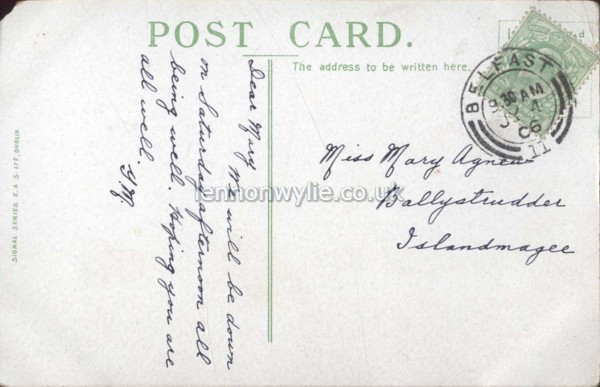 POST CARD.
The address to be written here.
Dear Mary We will be down
on Saturday afternoon all
being well. Hoping you are
all well.
BELFAST
30 AM
06
11
Miss Mary Agnew
Ballystrudder
Islandmagee
lennonwylie.co.uk
SIGNAL SERIES E. & S. LTD, DUBLIN